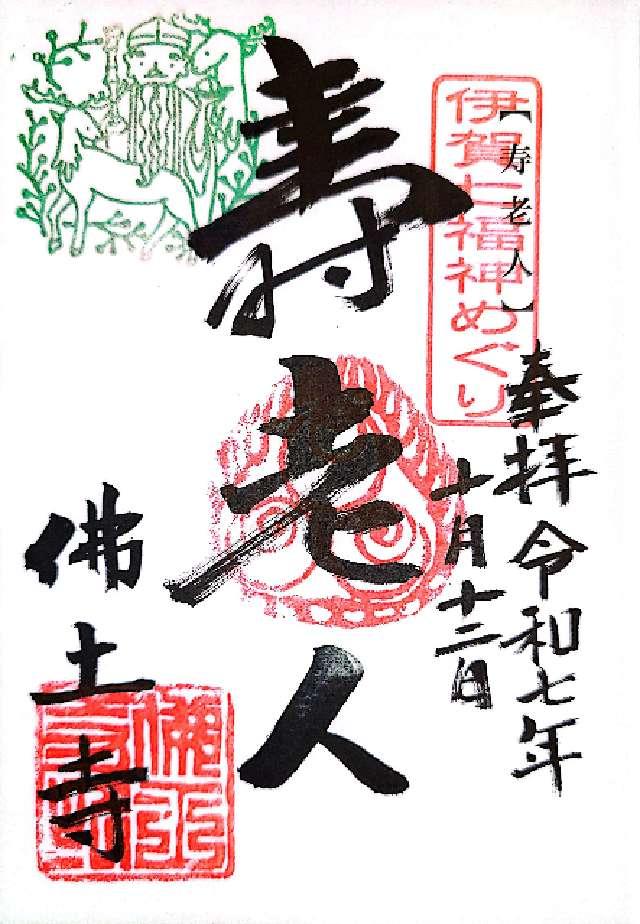 伊賀七福神めぐり
【寿老人】
奉拝 令和七年
十月十二日
壽老人
佛土寺